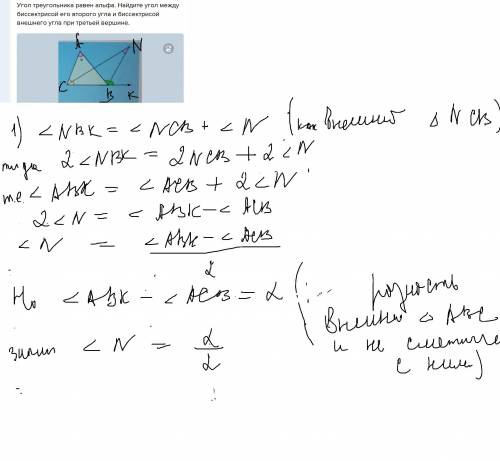 Угол треугольника равен альфа. Найдите угол между
биссектрисой его второго угла и биссектрисой
внешнего угла при третьей вершине.
A
N
C
B
K
1) ∠NBK = ∠NCB + ∠N (как внешний △ NCB)
тогда 2∠NBK = 2NCB + 2∠N
т.е. ∠ABK = ∠ACB + 2∠N
2∠N = ∠ABK - ∠ACB
∠N = (∠ABK - ∠ACB) / 2
Но ∠ABK - ∠ACB = α (... разность
внешний △ ABC
и не смежный
с ним)
значит ∠N = α / 2